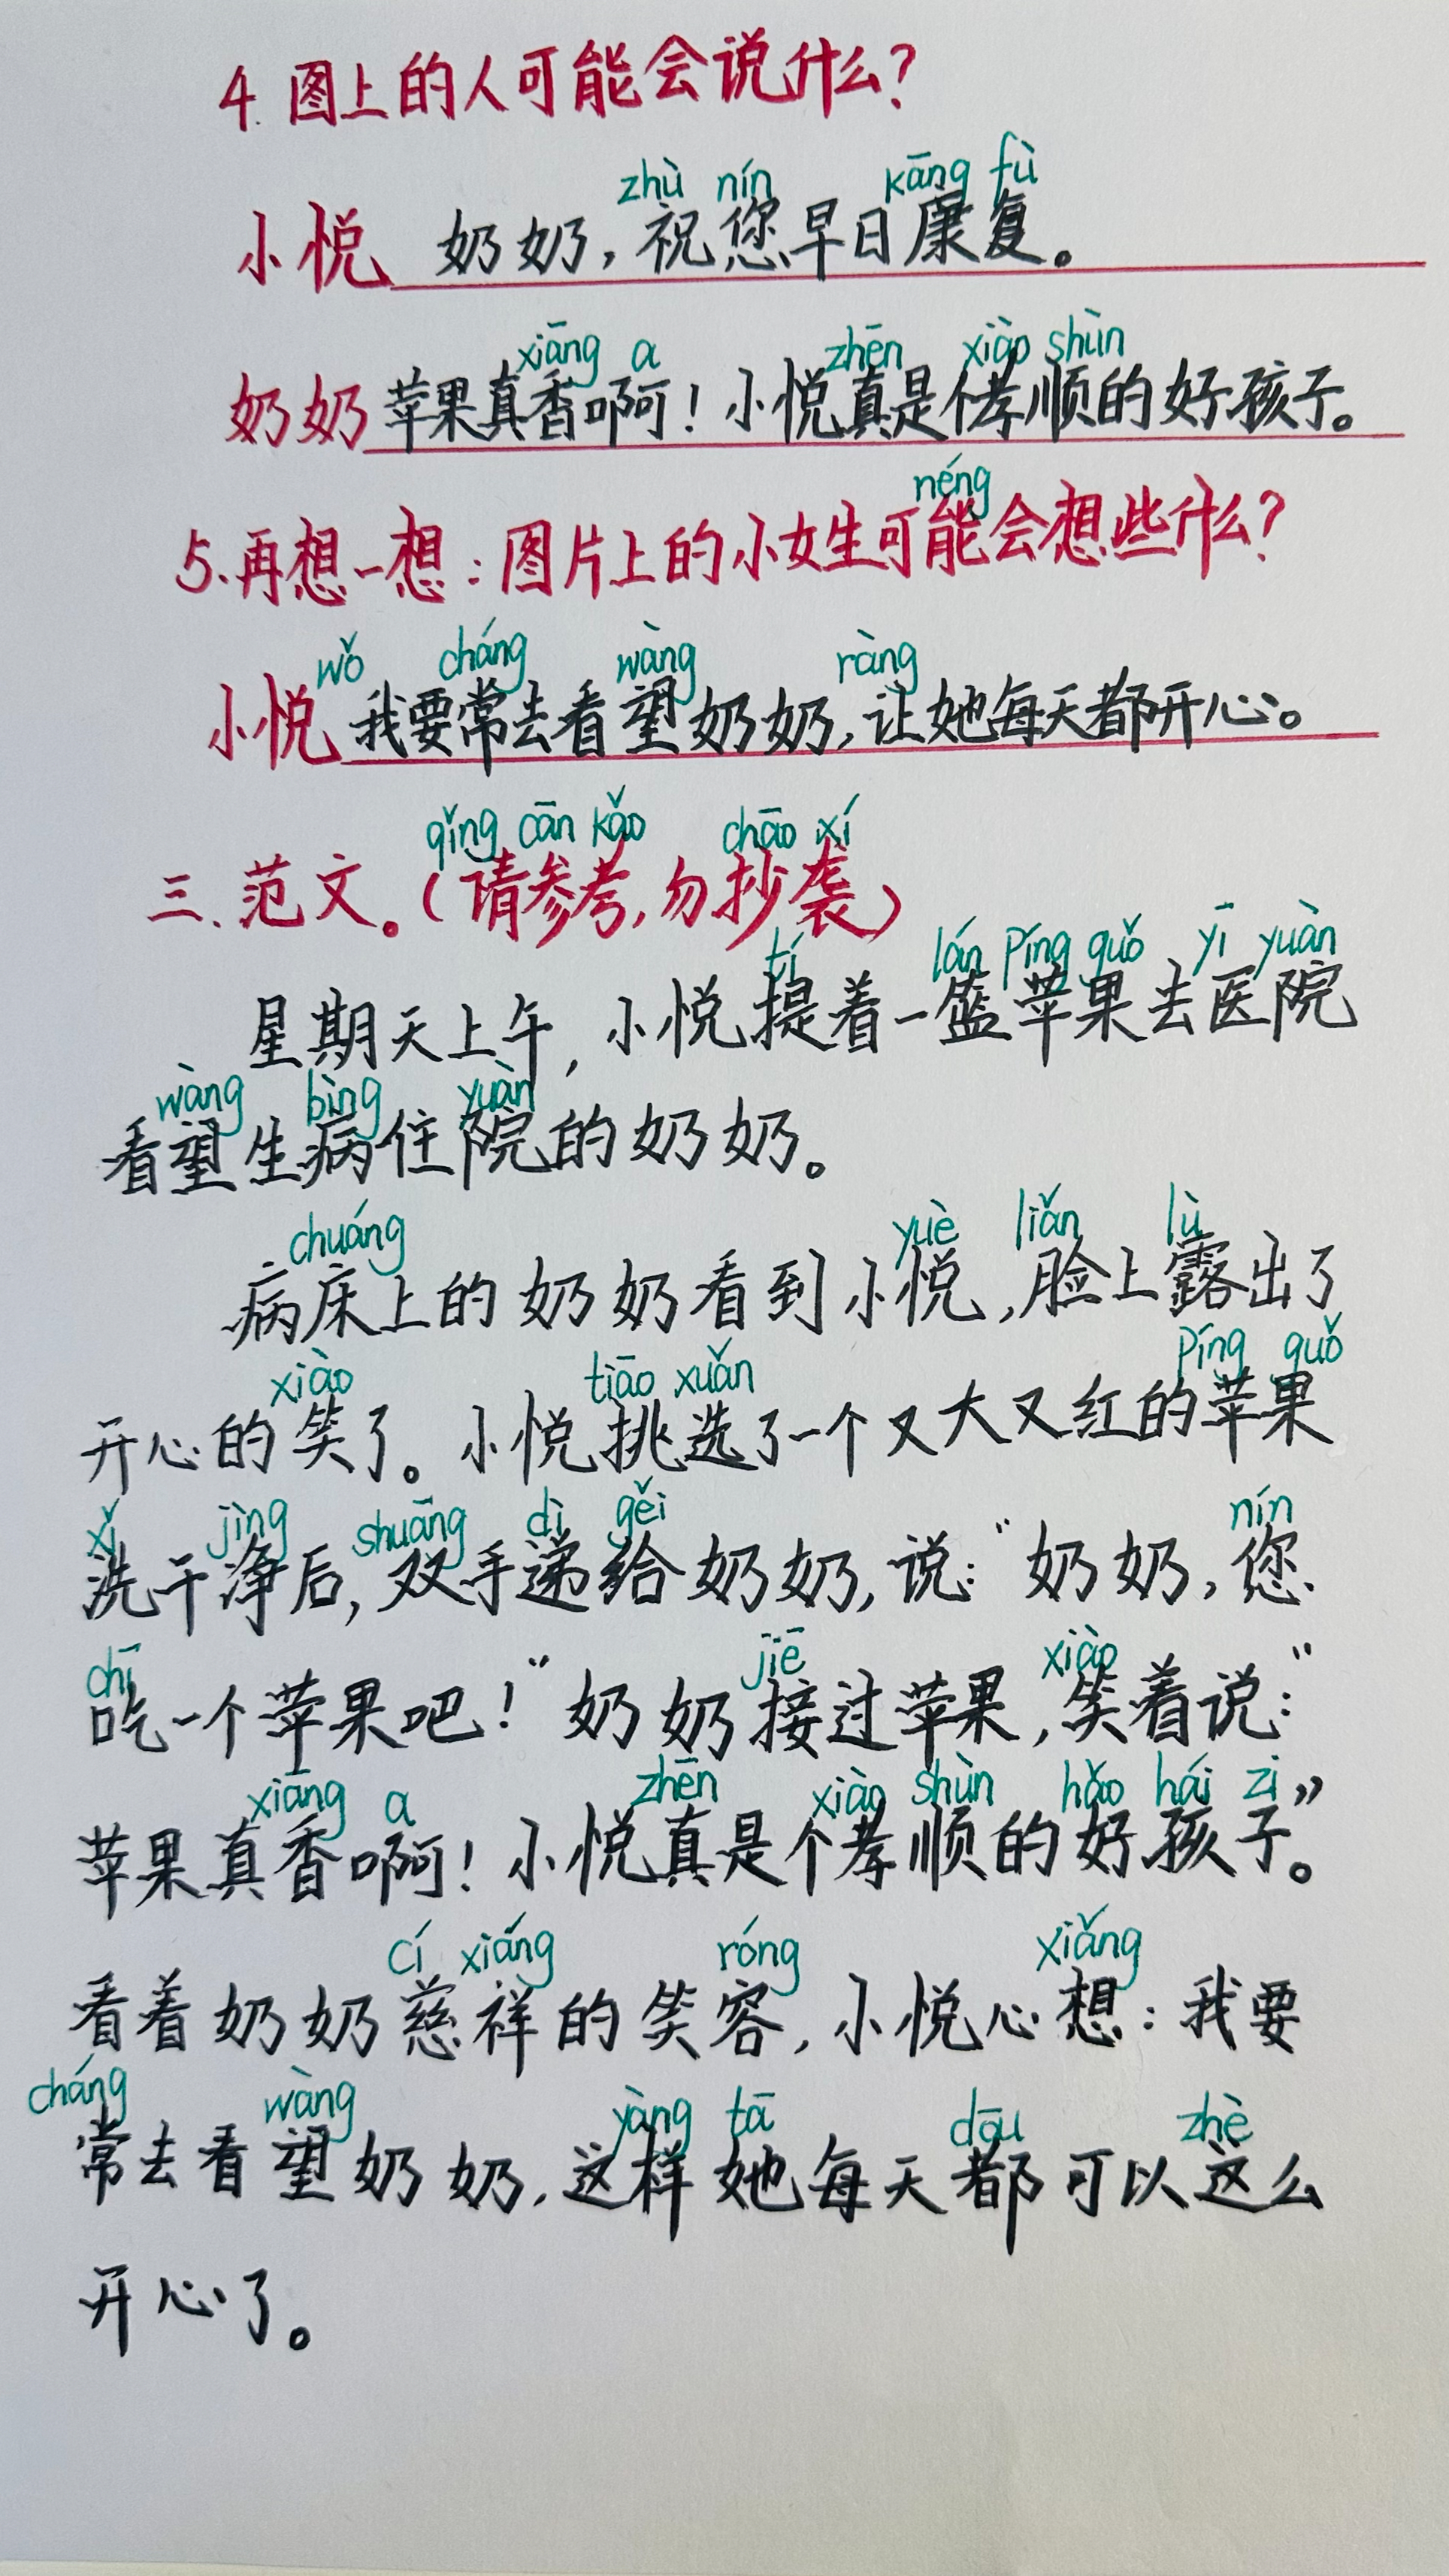 4. 图上的人可能会说什么?
zhù nín kāng fù
小悦 奶奶,祝您早日康复。
xiāng a zhēn xiào shùn
奶奶 苹果真香啊!小悦真是个孝顺的好孩子。
néng
5.再想一想:图片上的小女生可能会想些什么?
wǒ cháng wàng ràng
小悦 我要常去看望奶奶,让她每天都开心。
qǐng cān kǎo chāo xí
三、范文。(请参考,勿抄袭)
tí lán píng guǒ yī yuàn
星期天上午,小悦提着一篮苹果去医院
wàng bìng yuàn
看望生病住院的奶奶。
chuáng yuè liǎn lù
病床上的奶奶看到小悦,脸上露出了
xiào tiāo xuǎn píng guǒ
开心的笑了。小悦挑选了一个又大又红的苹果
xǐ jìng shuāng dì gěi nín
洗干净后,双手递给奶奶,说:“奶奶,您
chī jiē xiào
吃一个苹果吧!”奶奶接过苹果,笑着说:“
xiāng a zhēn xiào shùn hǎo hái zi
苹果真香啊!小悦真是个孝顺的好孩子。”
cí xiáng róng xiǎng
看着奶奶慈祥的笑容,小悦心想:我要
cháng wàng yàng tā dōu zhè
常去看望奶奶,这样她每天都可以这么
开心了。